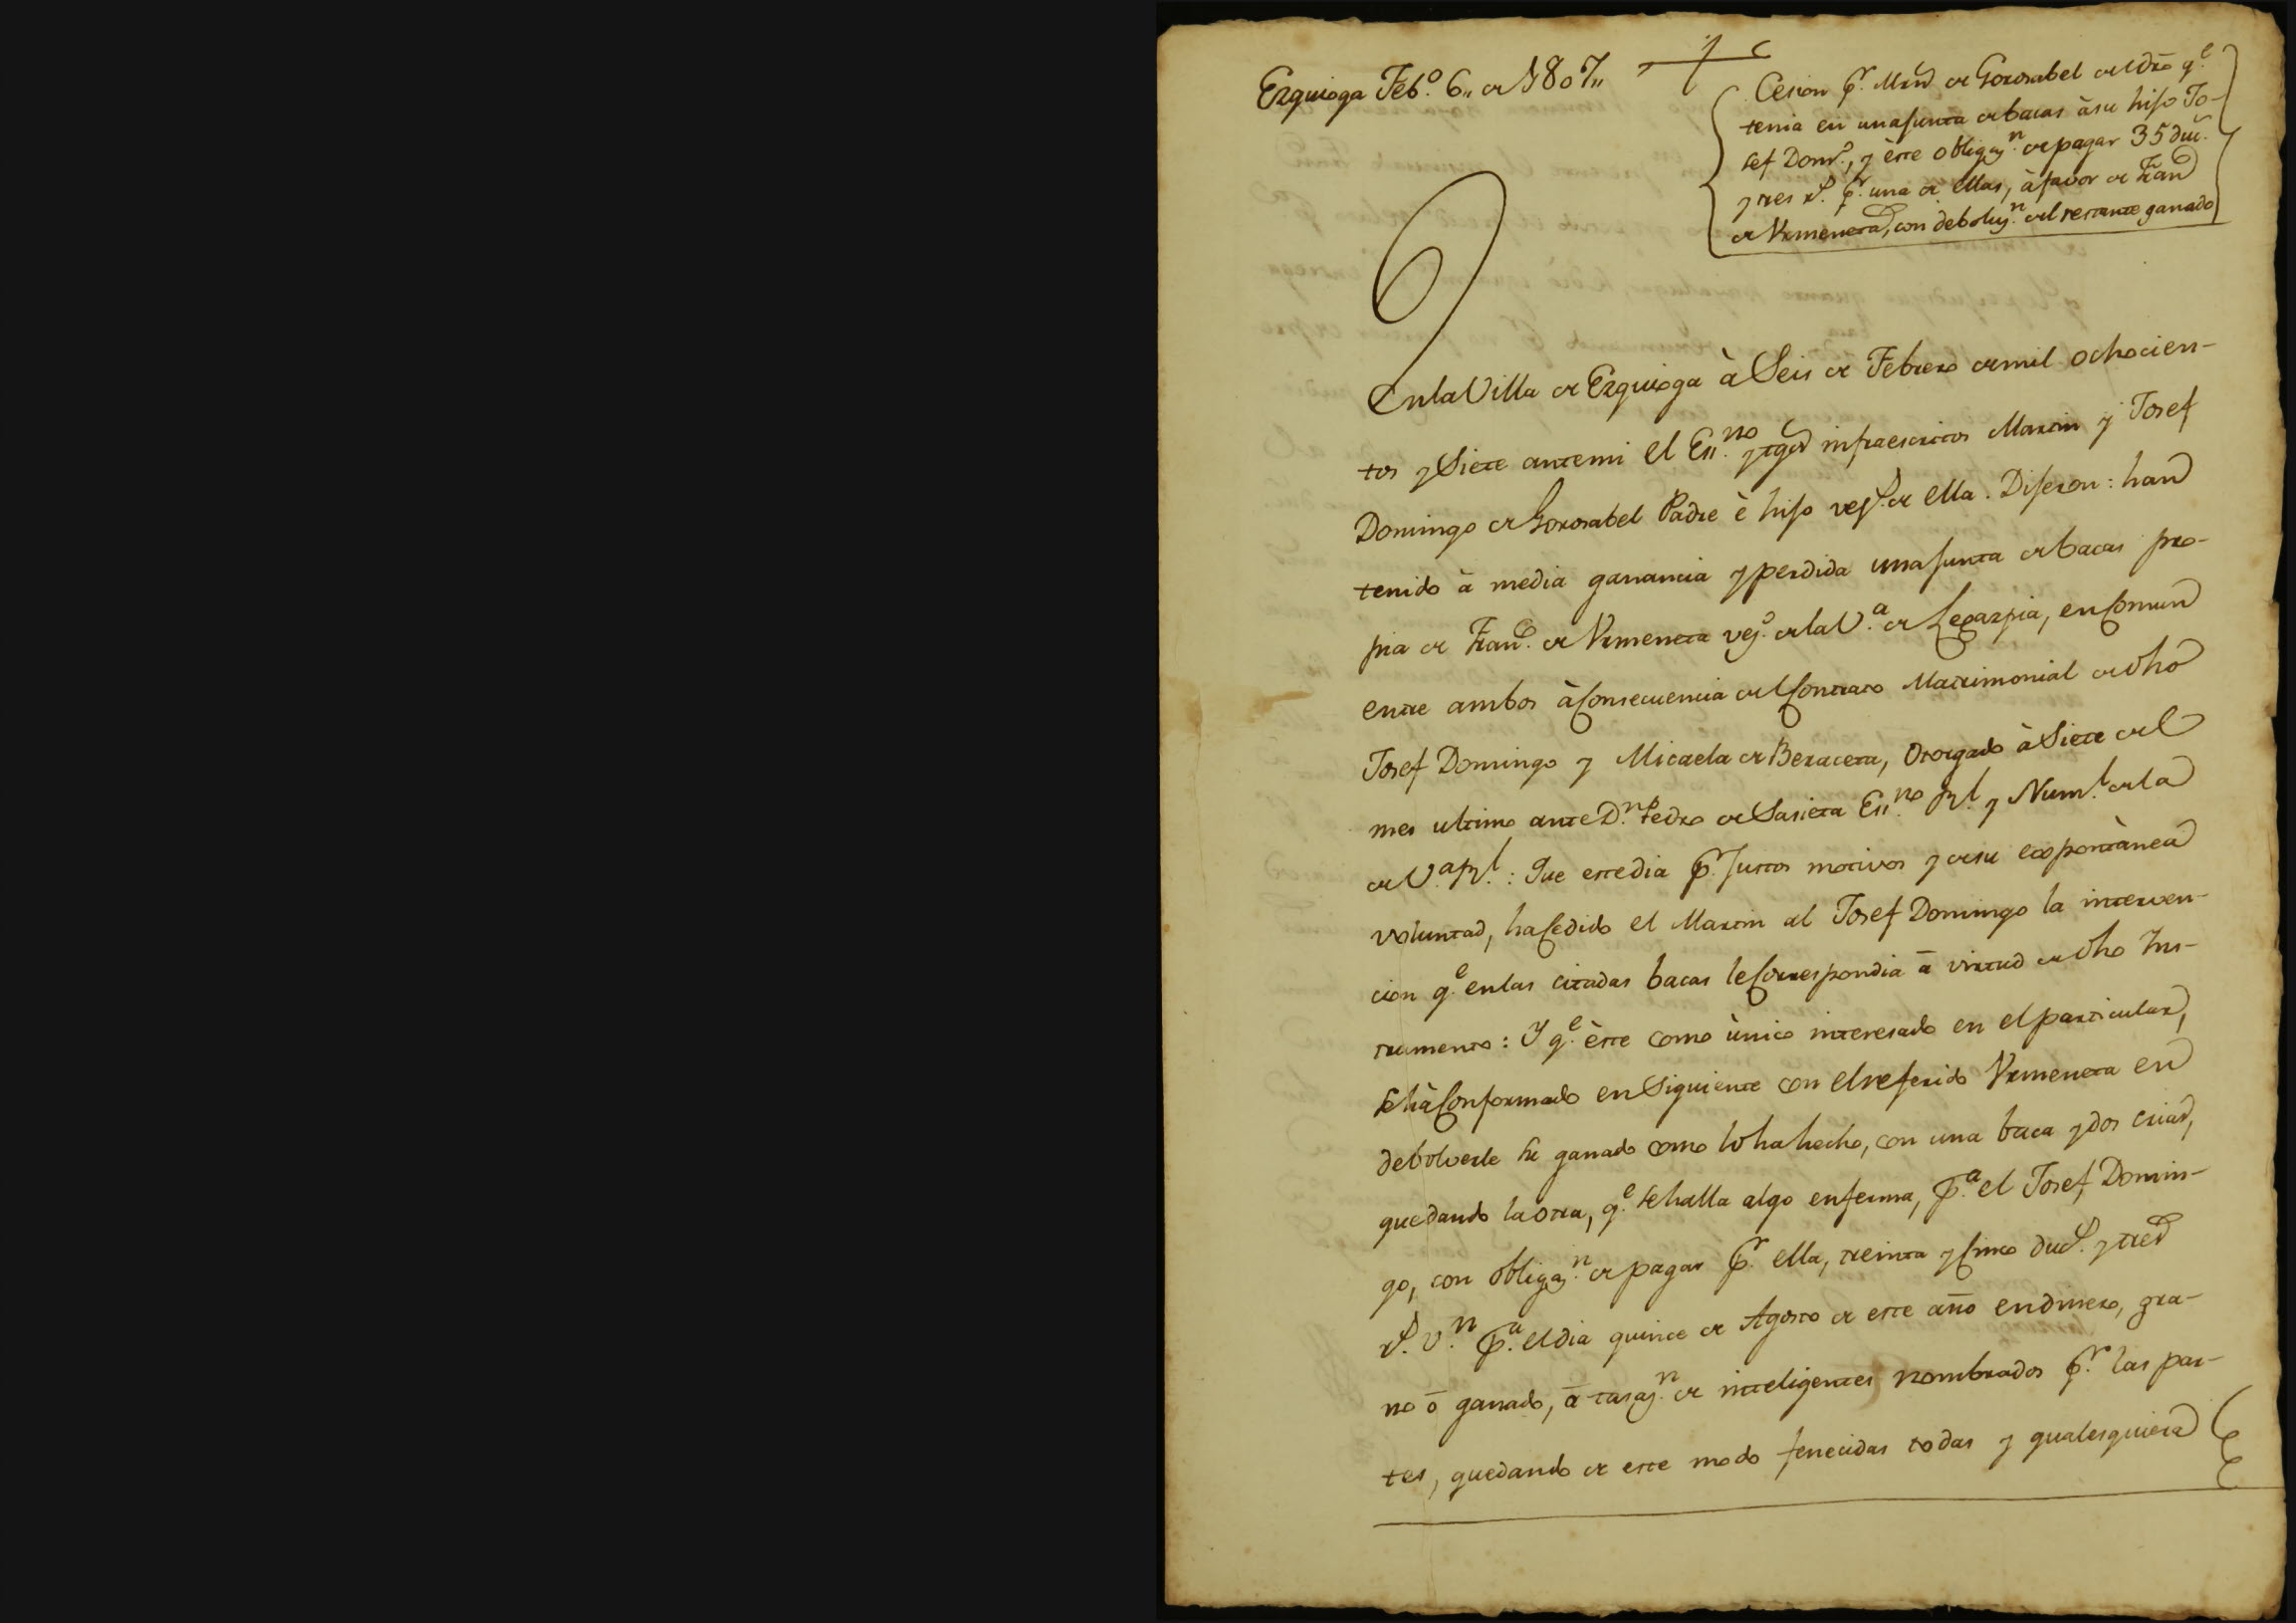 Ezquioga Feb.º 6,, de 1807,,
Cesion p.r Mrn de Gorosabel del dro q.e
tenia en una junta de bacas à su hijo Jo-
sef Dom.º, y èste obligaz.n de pagar 35 duc.
y tres r.s p.r una de ellas, à favor de Fran.co
de Urmeneta, con deboluz.n del restante ganado
En la Villa de Ezquioga à Seis de Febrero de mil ochocien-
tos y Siete ante mi el Ess.no y tgos infraescritos Martin y Josef
Domingo de Gorosabel Padre è hijo vez.s de ella. Dijeron: han
tenido à media ganancia y perdida una junta de bacas pro-
pia de Fran.co de Urmeneta vez.º de la V.a de Legazpia, en Comun
entre ambos à Consecuencia del Contrato Matrimonial de dho
Josef Domingo y Micaela de Beraceta, Otorgado à Siete del
mes ultimo ante D.n Pedro de Sasieta Ess.no Rl. y Num.l de la
de V.a Rl.: Que este dia p.r Justos motivos y de su expontànea
voluntad, ha Cedido el Martin al Josef Domingo la interven-
cion q.e en las citadas bacas le Correspondia à virtud de dho Ins-
trumento: Y q.e èste como ùnico interesado en el particular,
se hà Conformado en Siguiente con el referido Urmeneta en
debolverle su ganado como lo ha hecho, con una baca y dos crias,
quedando la otra, q.e se halla algo enferma, p.a el Josef Domin-
go, con obligaz.n de pagar p.r ella, treinta y Cinco duc.s y tres
r.s v.n p.a el dia quince de Agosto de este año en dinero, gra-
no ò ganado, à tasaz.n de inteligentes nombrados p.r las par-
tes, quedando de este modo fenecidas todas y qualesquiera